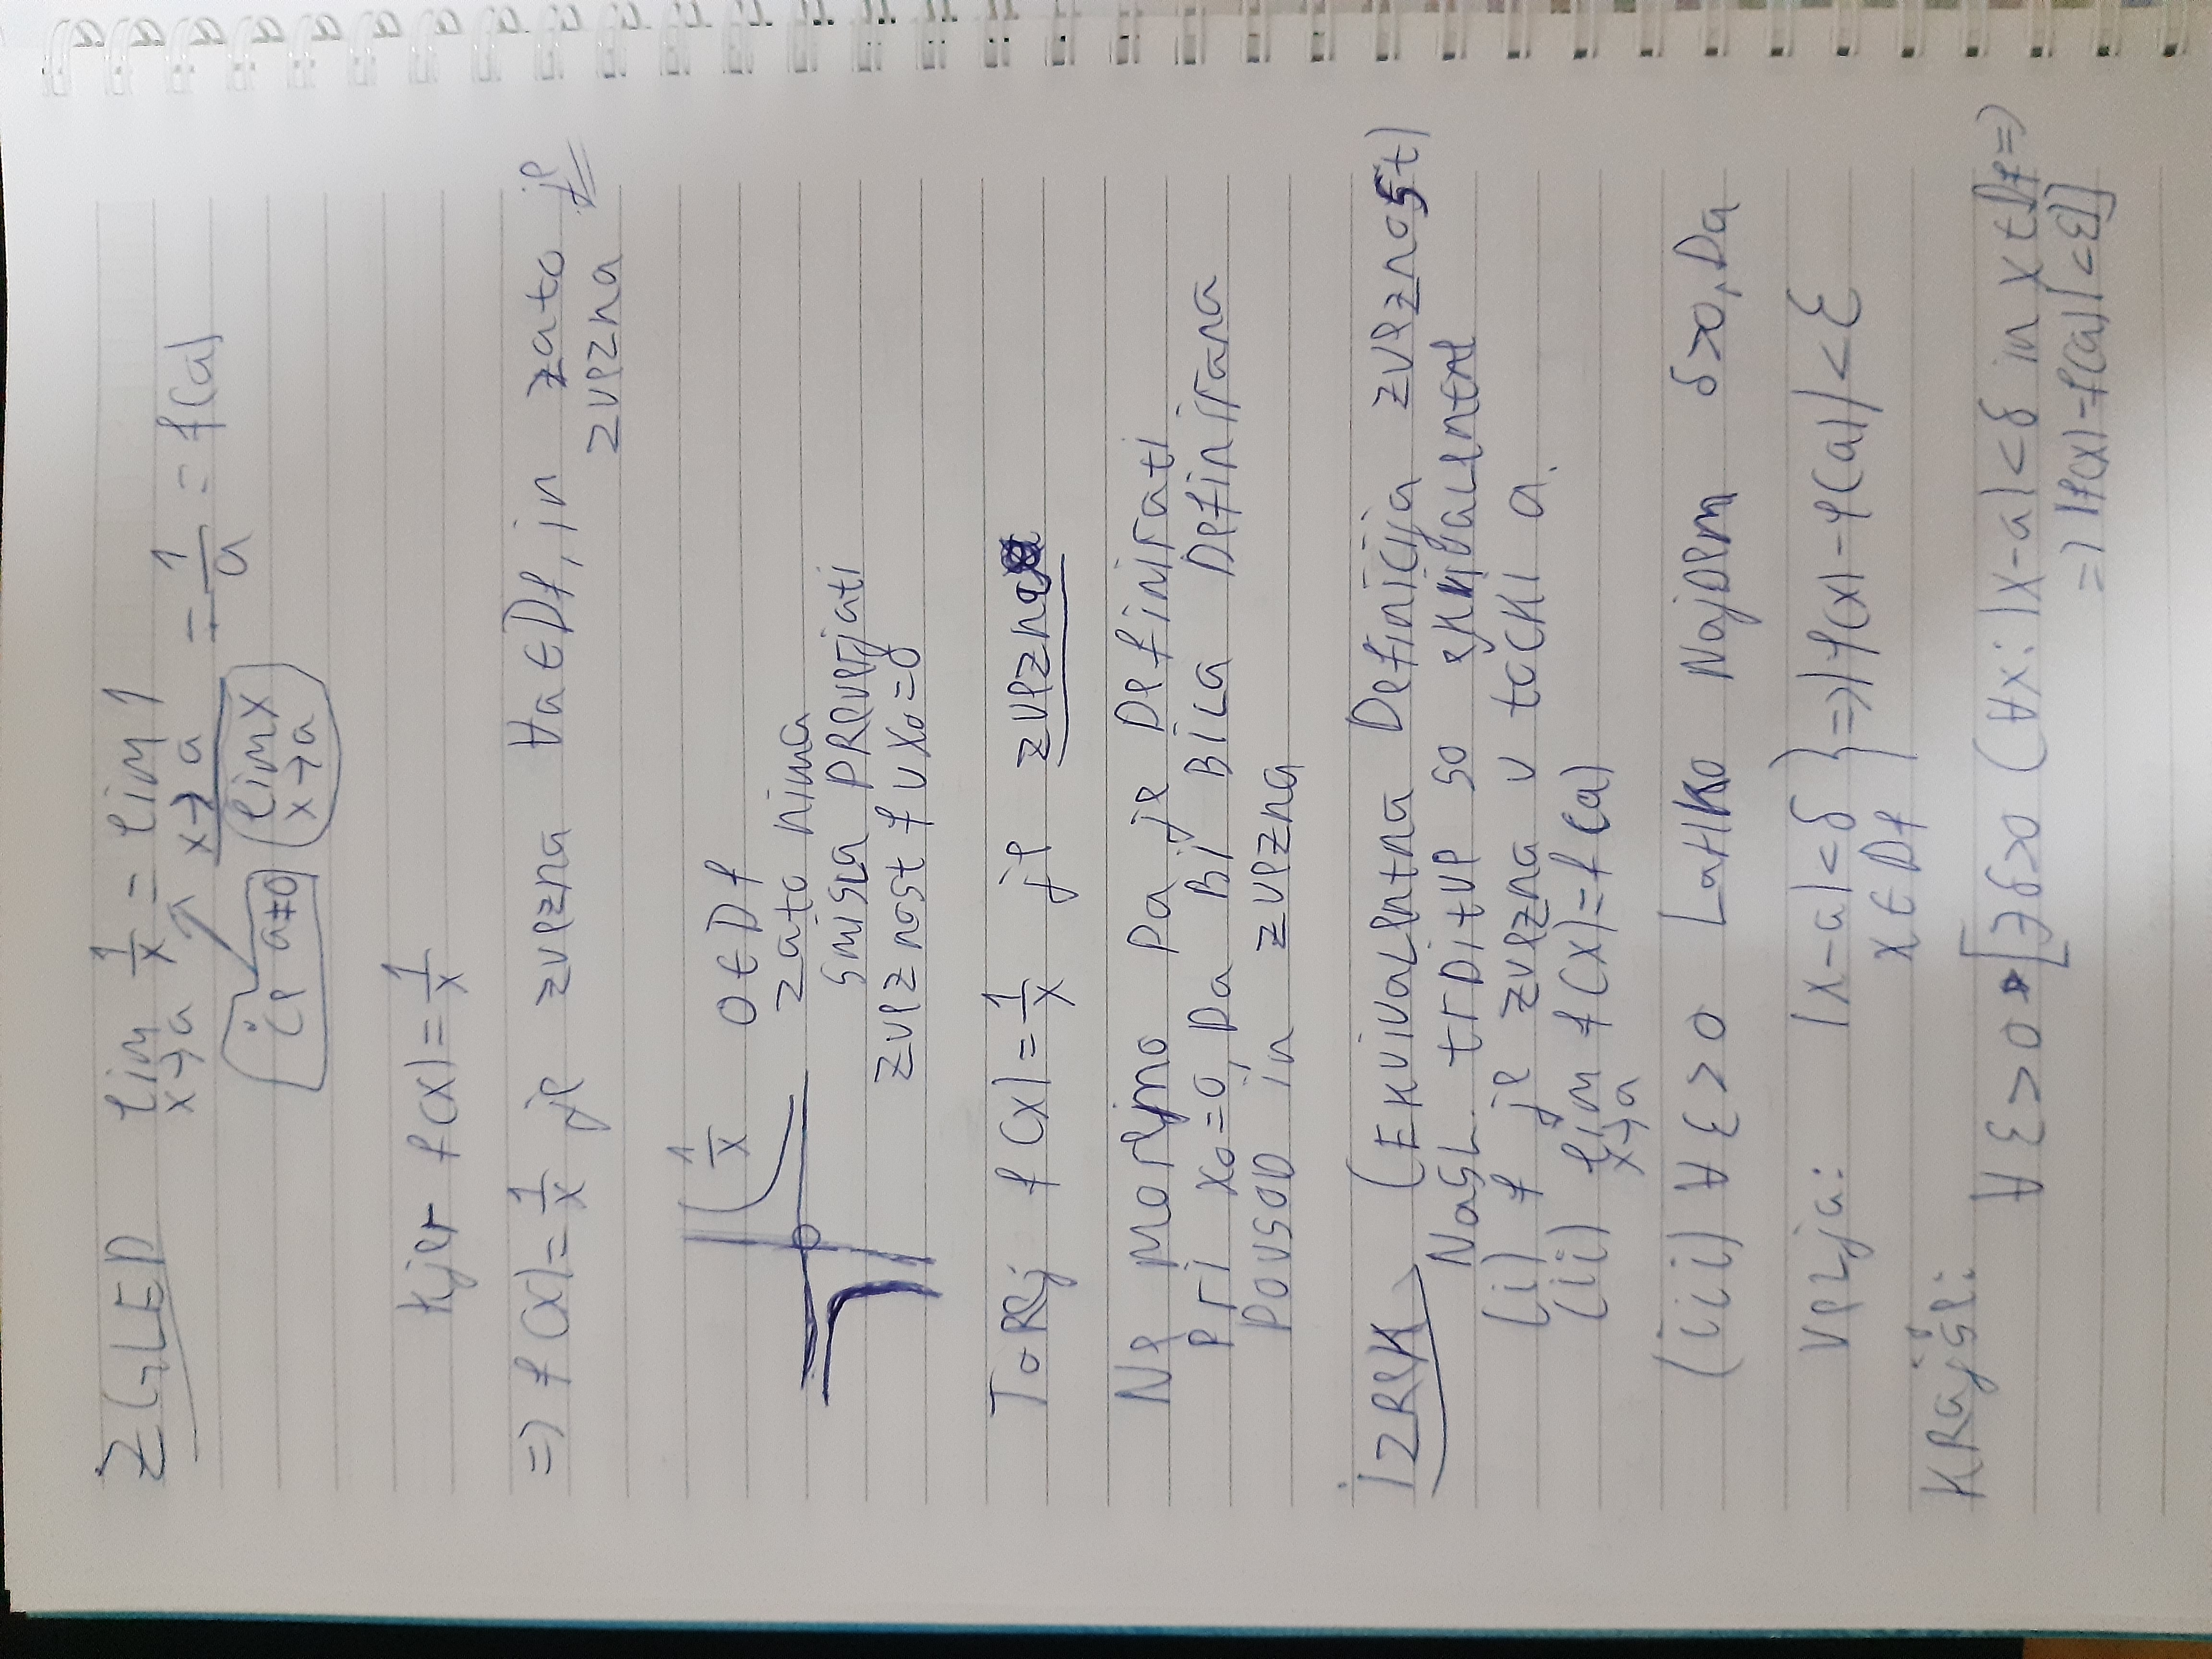 ZGLED lim x→a 1/x = (lim x→a 1)/(lim x→a x) = 1/a = f(a)
če a≠0
kjer f(x) = 1/x
=> f(x) = 1/x je zvezna ∀a∈Df, in zato je
zvezna
1/x
0∈Df
zato nima
smisla preverjati
zveznost f v x₀=0
Torej f(x) = 1/x je zvezna
Ne moremo pa je definirati
pri x₀=0, da bi bila definirana
povsod in zvezna
IZREK (Ekvivalentna definicija zveznost)
Nasl. trditve so ekvivalentne
(i) f je zvezna v točki a.
(ii) lim x→a f(x)=f(a)
(iii) ∀ε>0 lahko najdem δ>0, da
velja: |x-a|<δ
x∈Df } => |f(x)-f(a)|<ε
Krajše:
∀ε>0 [∃δ>0 (∀x: |x-a|<δ in x∈Df =>
=> |f(x)-f(a)|<ε)]